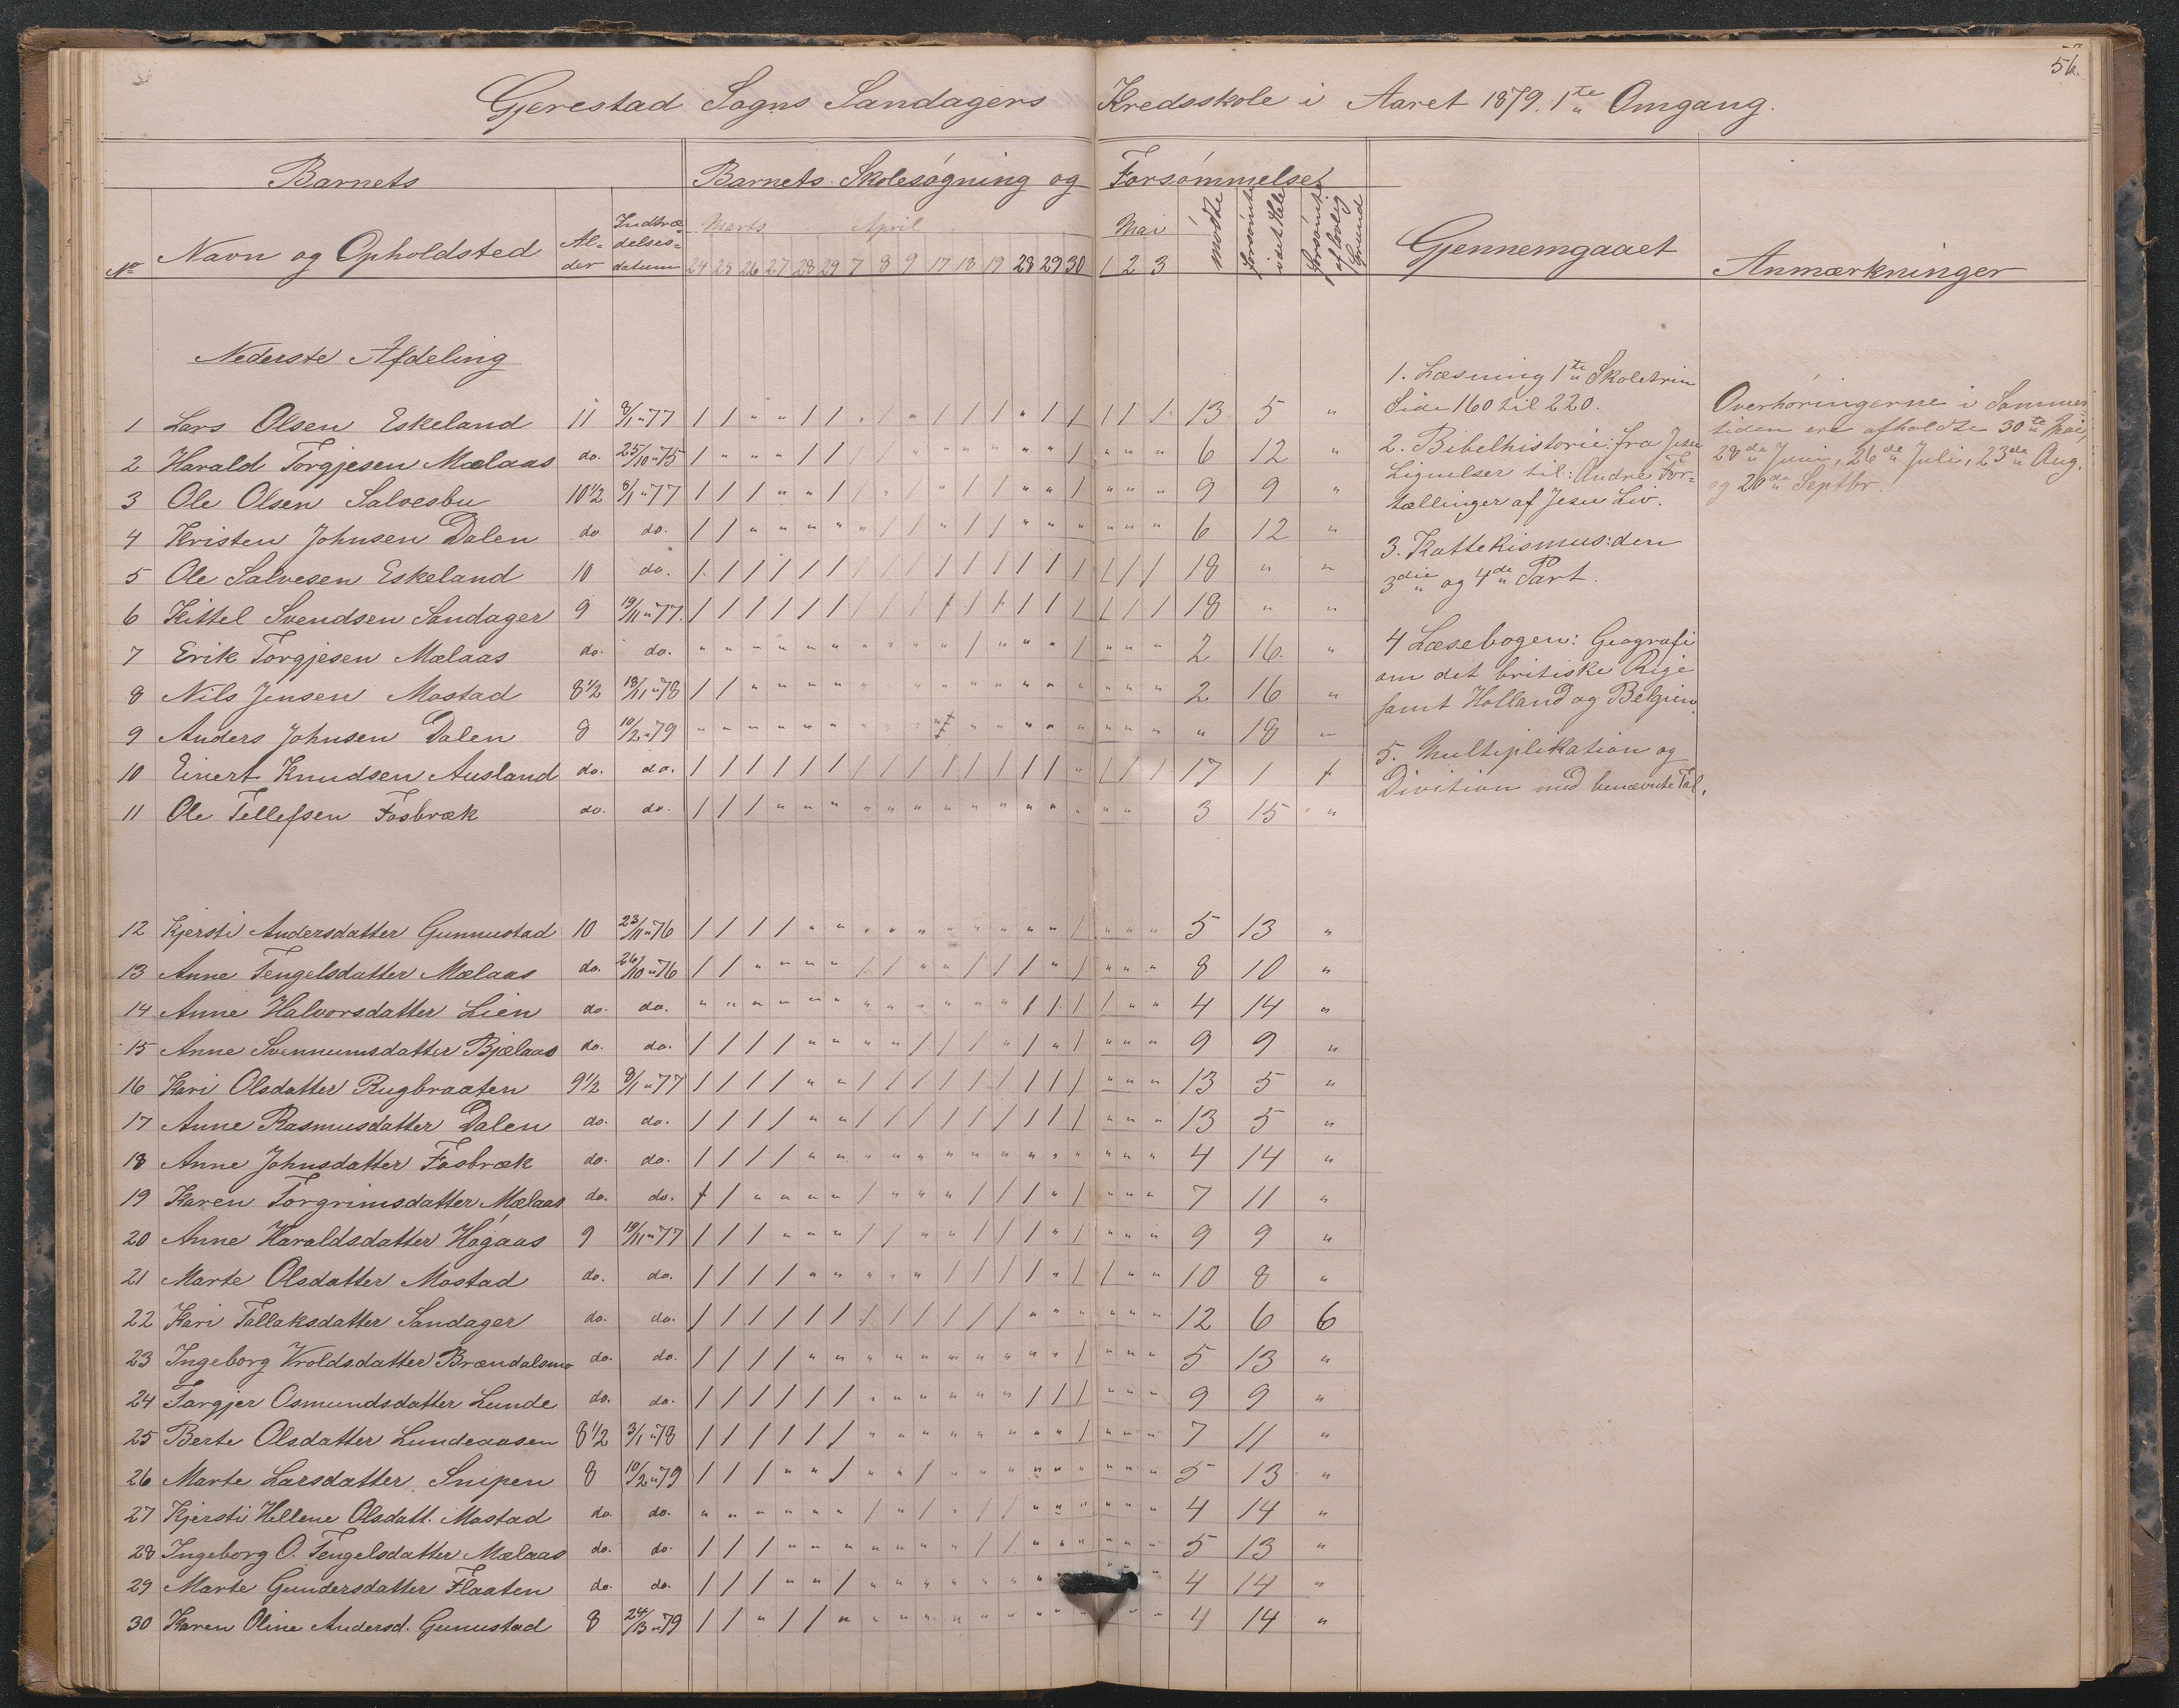 56.
Gjerestad Sogns Sandagers Kredsskole i Aaret 1879. 1te Omgang.
Barnets
Barnets Skolesøgning og Forsømmelser
No Navn og Opholdsted
Al-
der
Indtræ-
delses-
datum
Marts April Mai
24 25 26 27 28 29 7 8 9 17 18 19 28 29 30 1 2 3
mødte
forsømte i det Hele
forsømte af lovlig Grund
Gjennemgaaet
Anmærkninger
Nederste Afdeling
1 Lars Olsen Eskeland 11 8/1 "77 / / " " / / " / " / / / " / / / / / 13 5 "
2 Harald Torgjesen Mælaas do. 25/10 "75 / " " " / / / / " " " " " " / " " " 6 12 "
3 Ole Olsen Salvesbu 10 1/2 8/1 "77 / / / " " / / " / " / / " " / " " " 9 9 "
4 Kristen Johnsen Dalen do do. / / " " " " " / / " / / " " " " " " 6 12 "
5 Ole Salvesen Eskeland 10 do. / / / / / / / / / / / / / / / / / / 18 " "
6 Kittel Svendsen Sandager 9 19/11 "77. / / / / / / / / / / / / / / / / / / 18 " "
7 Erik Torgjesen Mælaas do. do. " " " " " " " " " " / " " " / " " " 2 16. "
8 Nils Jensen Mostad 8 1/2 18/11 "78 / / " " " " " " " " " " " " " " " " 2 16 "
9 Anders Johnsen Dalen 8 10/2 "79 " " " " " " " " " " " " " " " " " " " 18 "
10 Einert Knudsen Ausland do. do. / / / / / / / / / / / / / / " / / / 17 1 1
11 Ole Tellefsen Fosbræk do. do. / / / " " " " " " " " " " " " " " 3 15 "
12 Kjersti Andersdatter Gunnustad 10 23/11 "76 / / / / " " " " " " " " " " / " " " 5 13 "
13 Anne Tengelsdatter Mælaas do. 26/10 "76 / / " " " " / / " " / / / " / " " " 8 10 "
14 Anne Halvorsdatter Lien do. do. " " " " " " " " " " " " / / / / " " 4 14 "
15 Anne Svennumsdatter Bjælaas do. do. / / / / " " " " / / / " / " / " " " 9 9 "
16 Kari Olsdatter Rugbraaten 9 1/2 8/1 "77 / / / / " " / / / / / / / / / " " " 13 5 "
17 Anne Rasmusdatter Dalen do. do. / / / / " " / / / / / / / / / " " " 13 5 "
18 Anne Johnsdatter Fosbræk do. do. / / / / " " " " " " " " " " " " " " 4 14 "
19 Karen Torgrimsdatter Mælaas do. do. / / " " " " / " " " / / / " / " " " 7 11 "
20 Anne Haraldsdatter Høgaas 9 19/11 "77 / / / " " " / / " " / / / " / " " " 9 9 "
21 Marte Olsdatter Mostad do. do. / / / / " " " " " / / / / " / / " " 10 8 "
22 Kari Tallaksdatter Sandager do. do. / / / / / / / / / / / / " " " " " " 12 6 6
23 Ingeborg Vroldsdatter Brændalsmo do. do. / / / / " " " " " " " " " " / " " " 5 13 "
24 Targjer Osmundsdatter Lunde do. do. / / / / / / " " " " " " / / / " " " 9 9 "
25 Berte Olsdatter Lundeaasen 8 1/2 3/1 "78 / / / / / / " " " " " " " " / " " " 7 11 "
26 Marte Larsdatter Snipen 8 10/2 "79 / / / " " / " " / " " " " " " " " " 5 13 "
27 Kjersti Hellene Olsdatt. Mostad do. do. " " " " " " / " / " / / " " " " " " 4 14 "
28 Ingeborg O. Tengelsdatter Mælaas do. do. / / / " " " " " " " / / " " " " " " 5 13 "
29 Marte Gundersdatter Flaaten do. do. / / / " " / " " " " " " " " 4 14 "
30 Karen Oline Andersd. Gunustad 8 24/3 "79 / / " / / " " " " " " " " " " " " 4 14 "
1. Læsning 1te Skoletrin
Side 160 til 220.
2. Bibelhistorie: fra Jesu
Lignelser til: Andre For-
tællinger af Jesu Liv.
3. Kattekismus: den
3die og 4de Part.
4 Læsebogen: Geografi
om det britiske Rige
samt Holland og Belgien.
5. Multiplikation og
Division med benævnte Tal.
Overhøringerne i Sommer-
tiden ere afholdte 30te Mai,
28de Juni, 26de Juli, 23de Aug.
og 20de Septbr.